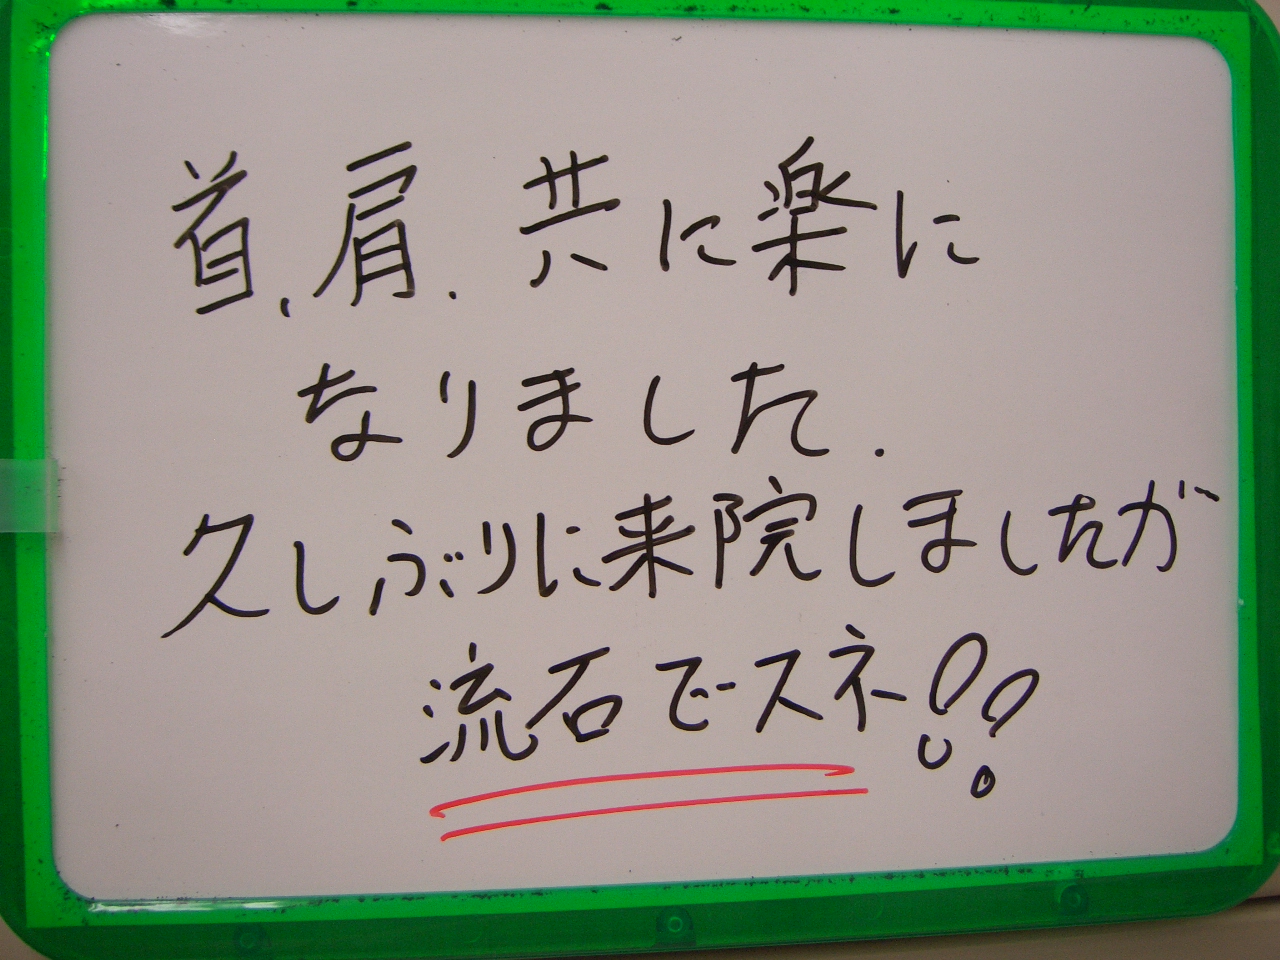 首、肩、共に楽に
なりました.
久しぶりに来院しましたが
流石でスネ!!